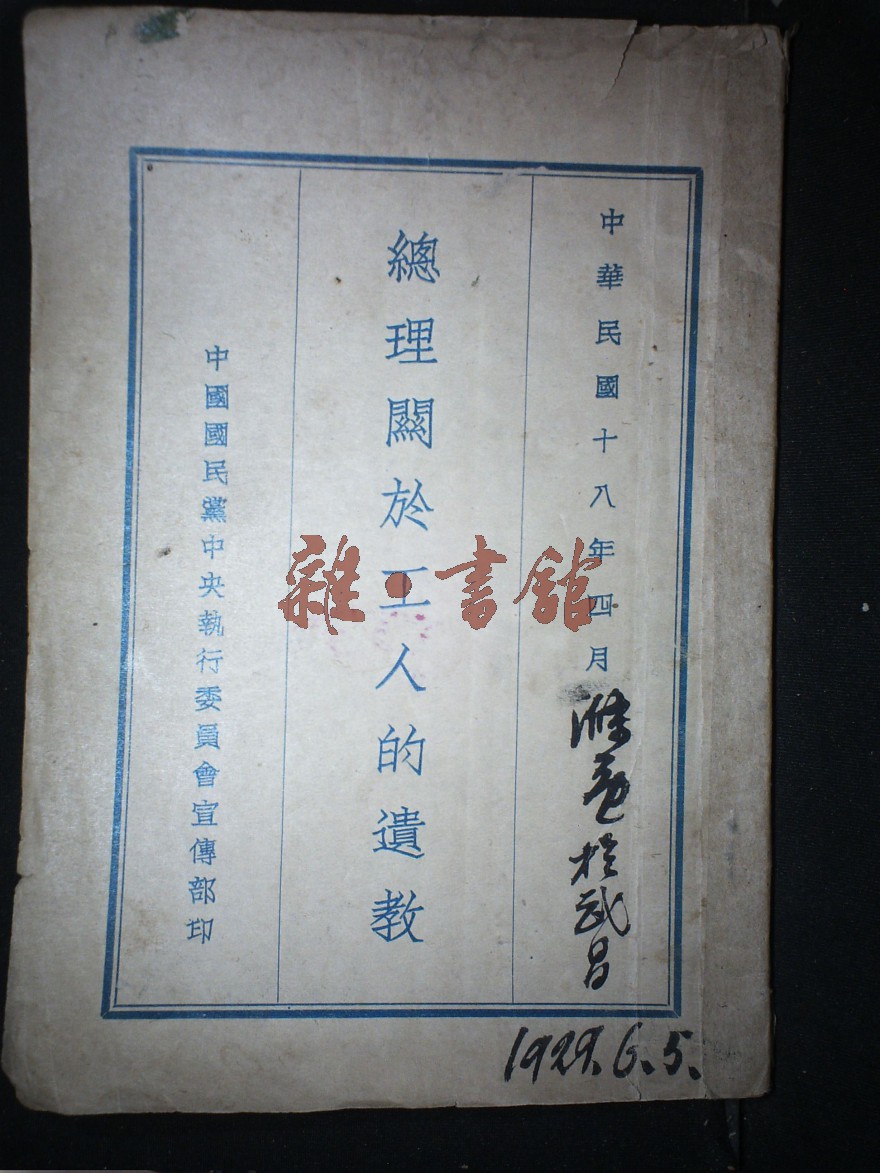 中華民國十八年四月
於武昌
總理關於工人的遺教
中國國民黨中央執行委員會宣傳部印
雜·書館
1929.6.5.